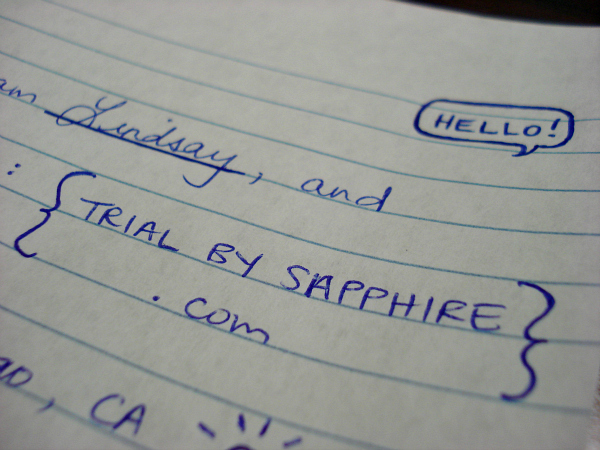 HELLO!
am Lindsay, and
: { TRIAL BY SAPPHIRE
.com }
go, CA